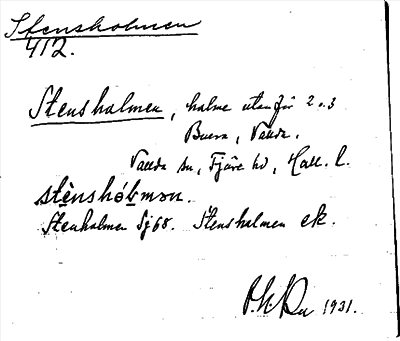 Stensholmen
412.
Stensholmen, holme utanför 2 o. 3
Buera, Vallda.
Vallda sn, Fjäre hd, Hall. l.
stènshólmən.
Stenholmen Sj 68. Stensholmen ek.
1931.